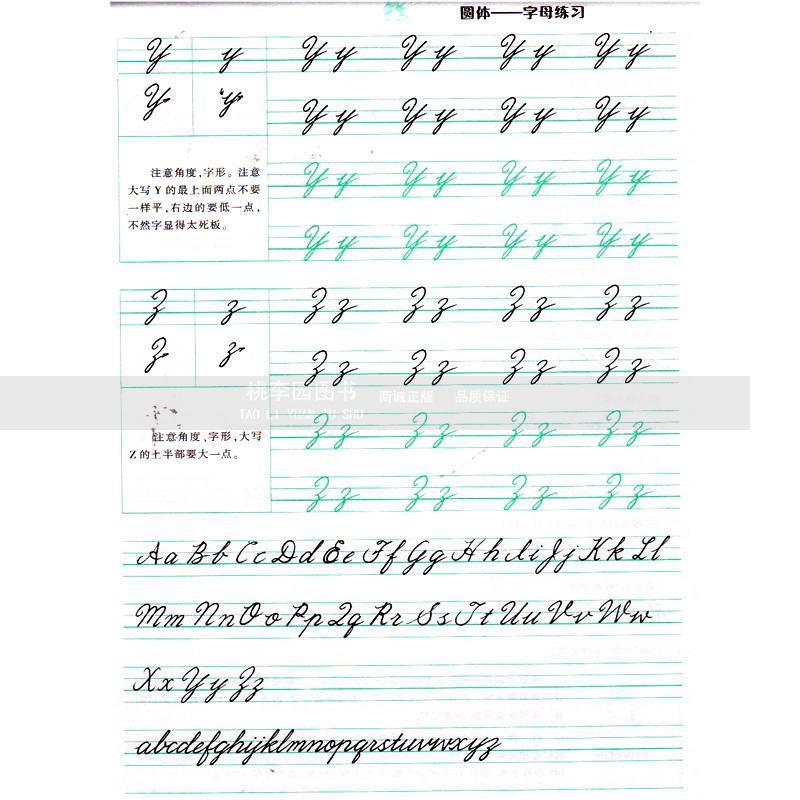 圆体——字母练习
Y y Y y Y y Y y Y y
Y y Y y Y y Y y Y y
注意角度,字形。注意
大写 Y 的最上面两点不要
一样平,右边的要低一点,
不然字显得太死板。
Y y Y y Y y Y y
Y y Y y Y y Y y
Z z Z z Z z Z z Z z
Z z Z z Z z Z z Z z
桃李园图书 商城正版 品质保证
TAO LI YUAN TU SHU
注意角度、字形,大写
Z 的上半部要大一点。
Z z Z z Z z Z z
Z z Z z Z z Z z
Aa Bb Cc Dd Ee Ff Gg Hh Ii Jj Kk Ll
Mm Nn Oo Pp Qq Rr Ss Tt Uu Vv Ww
Xx Yy Zz
abcdefghijklmnopqrstuvwxyz